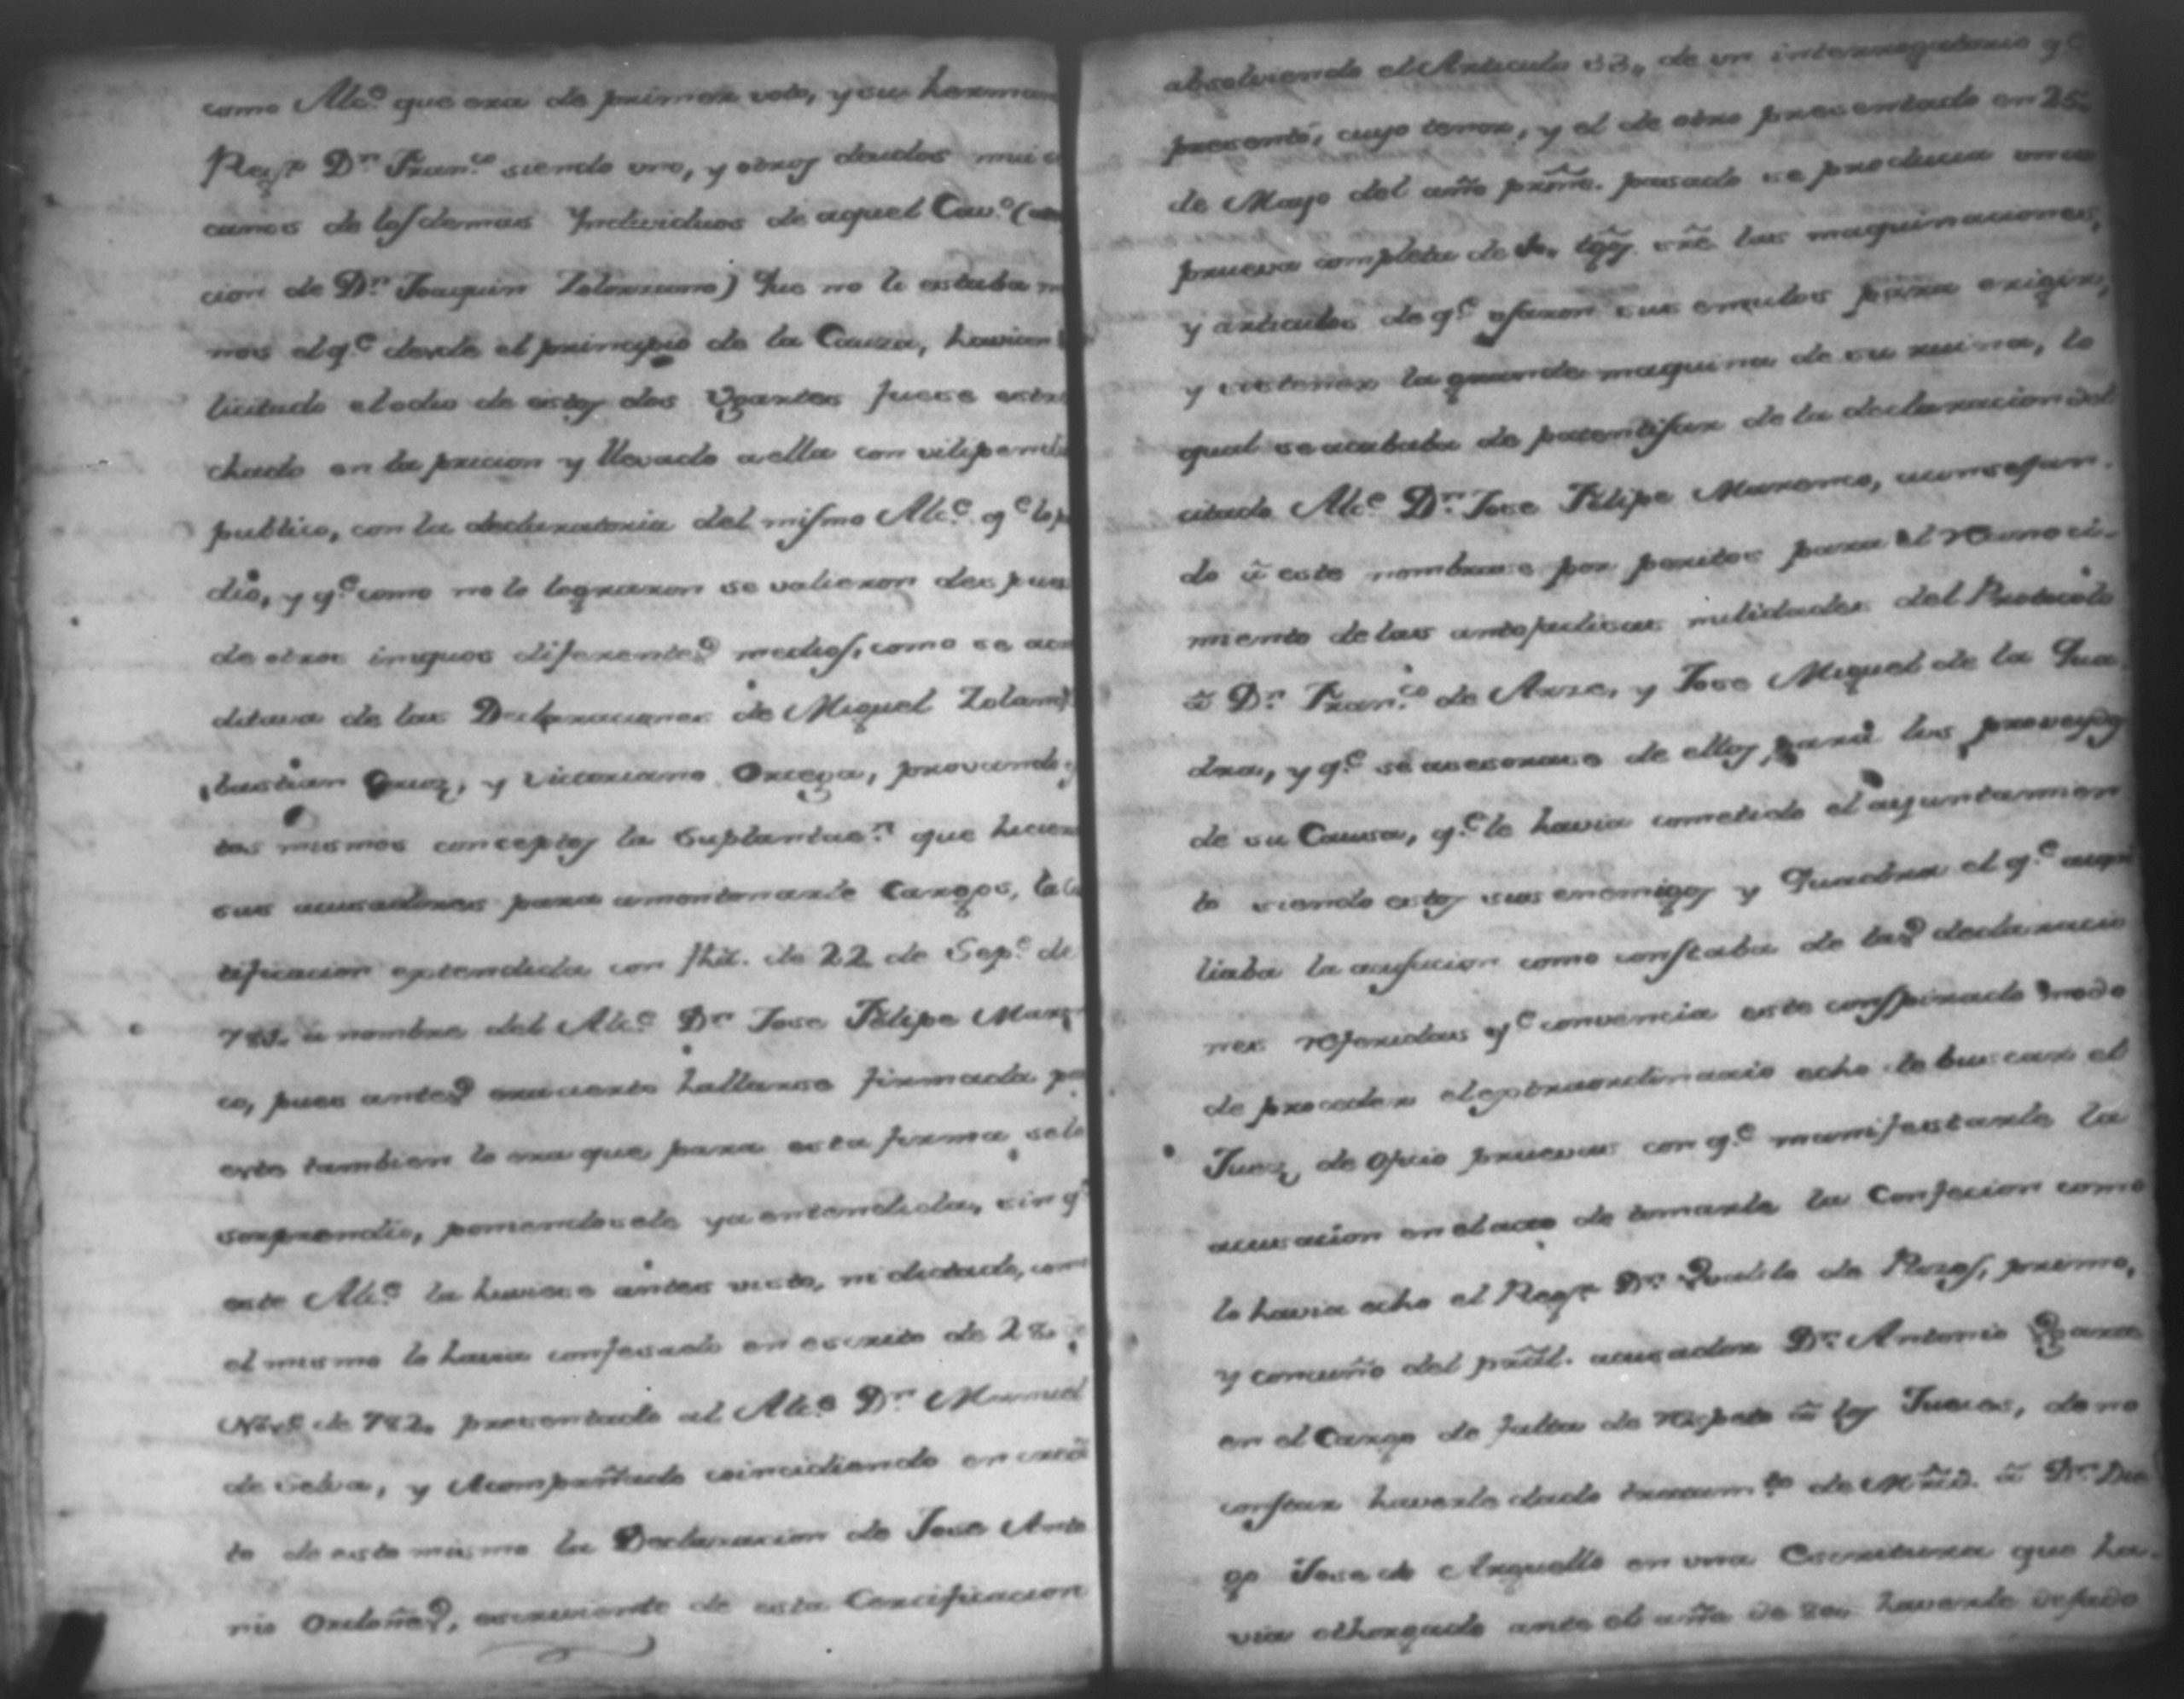 como Alc.e que era de primer voto, y su herman
Reg.r D.n Fran.co siendo uno, y otros deudos mui c
canos de los demas Yndividuos de aquel Cav.o (
cion de D.n Joaquin Zolorzano) Que no le estaba m
nos el q.e desde el principio de la Causa, havian
licitado el odio de estos dos Ugartes fuese estre
chado en la pricion y llevado a ella con vilipendi
publico, con la declaratoria del mismo Alc.e q.e lo p
dió, y q.e como no lo lograron se valieron despues
de otros iniquos diferentes medios, como se acre
ditava de las Declaraciones de Miguel Zolano,
bastian Cruz, y Victoriano Ortega, provando
tos mismos conceptos la Suplantac.n que hicier
sus acusadores para amontonarle Cargos, la C
tificacion extendida con fhã. de 22 de Sep.e de
781. a nombre del Alc.e D.n Jose Felipe Mare
co, pues antes era cierto hallarse firmada p
este tambien lo era que para esta firma se le
sorprendio, poniendosele ya entendida, sin q.e
este Alc.e la huviese antes visto, ni dictado, como
el mismo lo havia confesado en escrito de 28. de
Nov.e de 782. presentado al Alc.e D.n Manuel
de Selva, y Acompañado coincidiendo en crea
to de esto mismo la Declaracion de Jose Anto
nio Ordoñes, escriviente de esta Certificacion
absolviendo el Articulo 33. de un interrogatorio q.e
presentó, cuyo tenor, y el de otro presentado en 25.
de Mayo del año prm̃o. pasado se producia una
prueva completa de tg̃os. sre. las maquinaciones,
y articulos de q.e usaron sus emulos para erigir,
y sostener la grande maquina de su ruina, lo
qual se acababa de patentisar de la declaracion del
citado Alc.e D.n Jose Felipe Marenco, aconsejan-
do ã este nombrase por peritos para el reconoci-
miento de las antojadisas nulidades del Protocolo
ã D.n Fran.co de Arze, y Jose Miguel de la Qua
dra, y q.e se asesorase de ellos, para los proveydos
de su Causa, q.e le havia cometido el ayuntamien
to siendo estos sus enemigos y Quadra el q.e auxi
liaba la acusacion como constaba de las declaracio
nes referidas q.e convencia este conspirado modo
de proceder el extraordinario echo de buscar el
Juez, de oficio pruevas con q.e manifestarle la
acusacion en el acto de tomarle la Confecion como
lo havia echo el Reg.r D.n de Pozos, primo,
y concuño del prãl. acusador D.n Antonio Ugarte
en el Cargo de falta de respeto ã los Jueces, de no
constar haverle dado tratam.to de Mrd̃. ã D.n Die
go Jose de Arguello en una Escritura que ha-
via othorgado ante el año de 80. haverle dejado